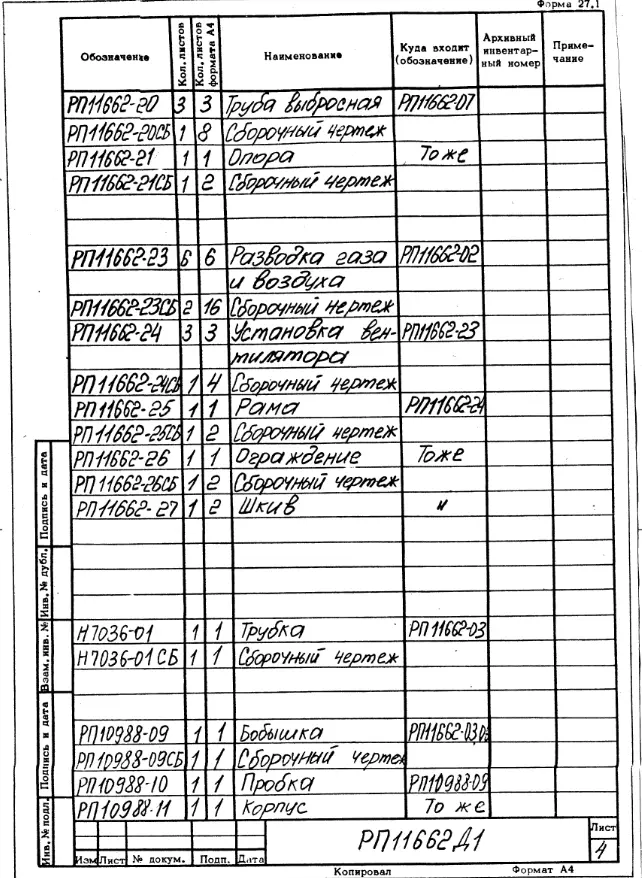 Форма 27.1
Обозначение Кол. листов Кол. листов формата А4 Наименование Куда входит (обозначение) Архивный инвентарный номер Примечание
РП11662-20 3 3 Труба выбросная РП11662-07
РП11662-20СБ 1 8 Сборочный чертеж
РП11662-21 1 1 Опора То же
РП11662-21СБ 1 2 Сборочный чертеж
РП11662-23 6 6 Разводка газа РП11662-02
и воздуха
РП11662-23СБ 2 16 Сборочный чертеж
РП11662-24 3 3 Установка вен- РП11662-23
тилятора
РП11662-24СБ 1 4 Сборочный чертеж
РП11662-25 1 1 Рама РП11662-24
РП11662-25СБ 1 2 Сборочный чертеж
РП11662-26 1 1 Ограждение То же
РП11662-26СБ 1 2 Сборочный чертеж
РП11662-27 1 2 Шкив "
Н7036-01 1 1 Трубка РП11662-03
Н7036-01СБ 1 1 Сборочный чертеж
РП10988-09 1 1 Бобышка РП11662-03,
РП10988-09СБ 1 1 Сборочный чертеж
РП10988-10 1 1 Пробка РП10988-09
РП10988-11 1 1 Корпус То же
Подпись и дата
Инв. № дубл.
Взам. инв. №
Подпись и дата
Инв. № подл.
Изм Лист № докум. Подп. Дата
РП11662Д1
Лист
4
Копировал Формат А4